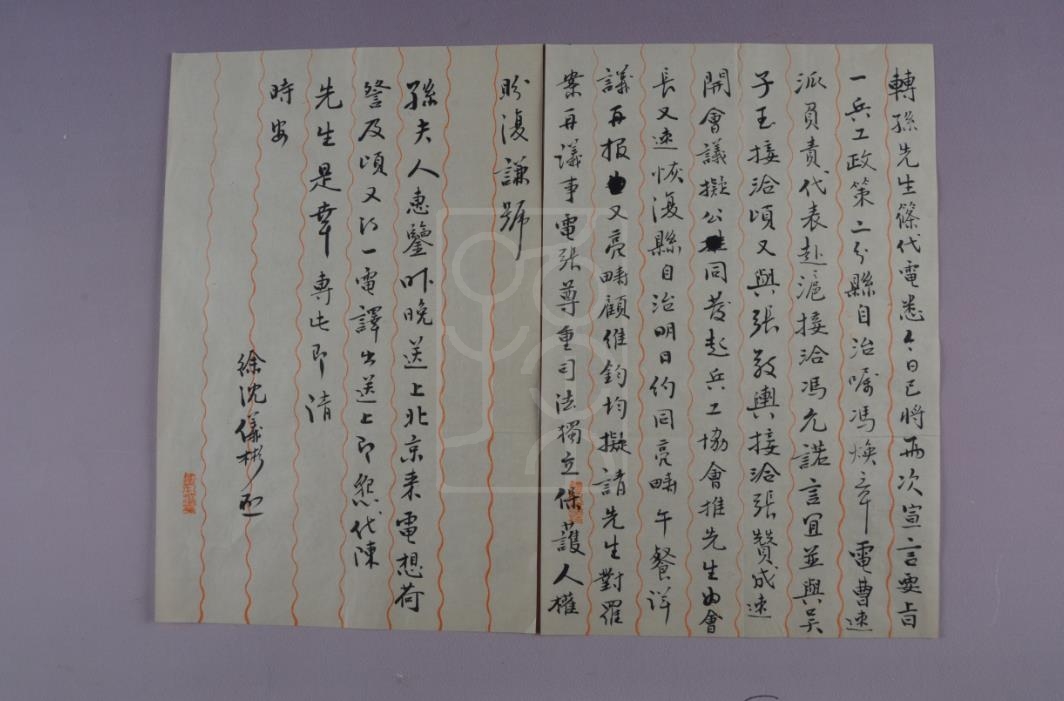 轉孫先生篠代電悉今日已將兩次宣言要旨
一兵工政策二分縣自治囑馮煥章電曹速
派員責代表赴滬接洽馮允諾言宜並與吳
子玉接洽頃又與張敬輿接洽張贊成速
開會議擬公同發起兵工協會推先生為會
長又速恢復縣自治明日約同亮疇午餐詳
議再报又亮疇顧維鈞均擬請先生對羅
案再議事電張尊重司法獨立保護人權
盼復謙號
孫夫人惠鑒昨晚送上北京来電想荷
詧及頃又得一電譯出送上即懇代陳
先生是幸專此即請
時安
徐沈儀彬